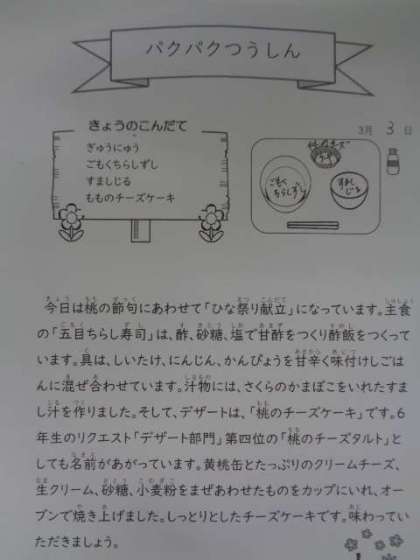 パクパクつうしん
3月 3 日
きょうのこんだて
ぎゅうにゅう
ごもくちらしずし
すましじる
もものチーズケーキ
ごもく
ちらしずし
すまし
じる
今日は桃の節句にあわせて「ひな祭り献立」になっています。主食
の「五目ちらし寿司」は、酢、砂糖、塩で甘酢をつくり酢飯をつくって
います。具は、しいたけ、にんじん、かんぴょうを甘辛く味付けしごは
んに混ぜ合わせています。汁物には、さくらのかまぼこをいれたすま
し汁を作りました。そして、デザートは、「桃のチーズケーキ」です。6
年生のリクエスト「デザート部門」第四位の「桃のチーズタルト」と
しても名前があがっています。黄桃缶とたっぷりのクリームチーズ、
生クリーム、砂糖、小麦粉をまぜあわせたものをカップにいれ、オー
ブンで焼き上げました。しっとりとしたチーズケーキです。味わってい
ただきましょう。